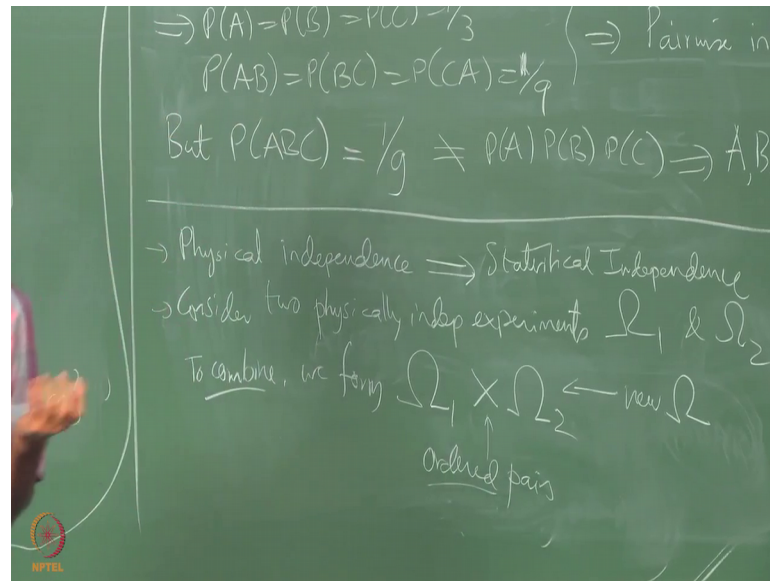 ⇒ P(A) = P(B) = P(C) = 1/3
P(AB) = P(BC) = P(CA) = 1/9 } ⇒ Pairwise in
But P(ABC) = 1/9 ≠ P(A) P(B) P(C) ⇒ A, B
→ Physical independence ⇒ Statistical Independence
→ Consider two physically indep experiments Ω₁ & Ω₂
To combine, we form Ω₁ × Ω₂ ← new Ω
ordered pairs
NPTEL